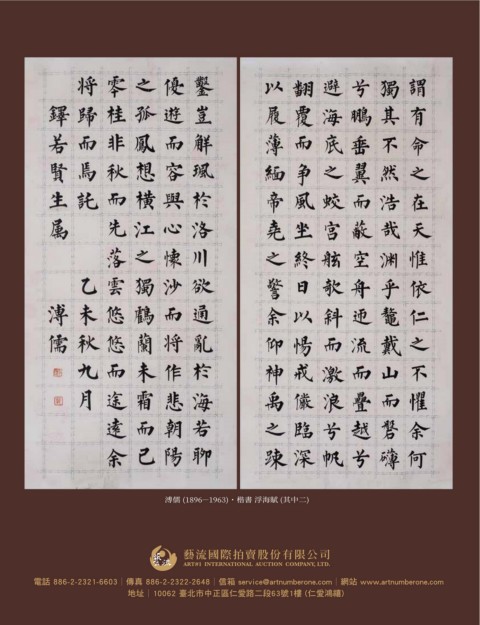 謂有命之在天惟依仁之不懼余何
獨其不然浩哉渊乎鼇戴山而礐礡
兮鵬垂翼而蔽空舟迊流而疊越兮
避海底之蛟宮舷欹斜而激浪兮帆
翻覆而争風坐終日以惕戒儼臨深
以履薄緬帝堯之警余仰神禹之疎
鑿豈解珮於洛川欲通亂於海若聊
優遊而容與心悚沙而將作悲朝陽
之孤鳳想橫江之獨鶴蘭未霜而已
零桂非秋而先落雲悠悠而途遠余
將歸而焉託 乙未秋九月
鐸若賢生属 溥儒
溥儒 (1896—1963)・楷書 浮海賦 (其中二)
藝流國際拍賣股份有限公司
ART#1 INTERNATIONAL AUCTION COMPANY, LTD.
電話 886-2-2321-6603｜傳真 886-2-2322-2648｜信箱 service@artnumberone.com｜網站 www.artnumberone.com
地址｜10062 臺北市中正區仁愛路二段63號1樓 (仁愛鴻禧)